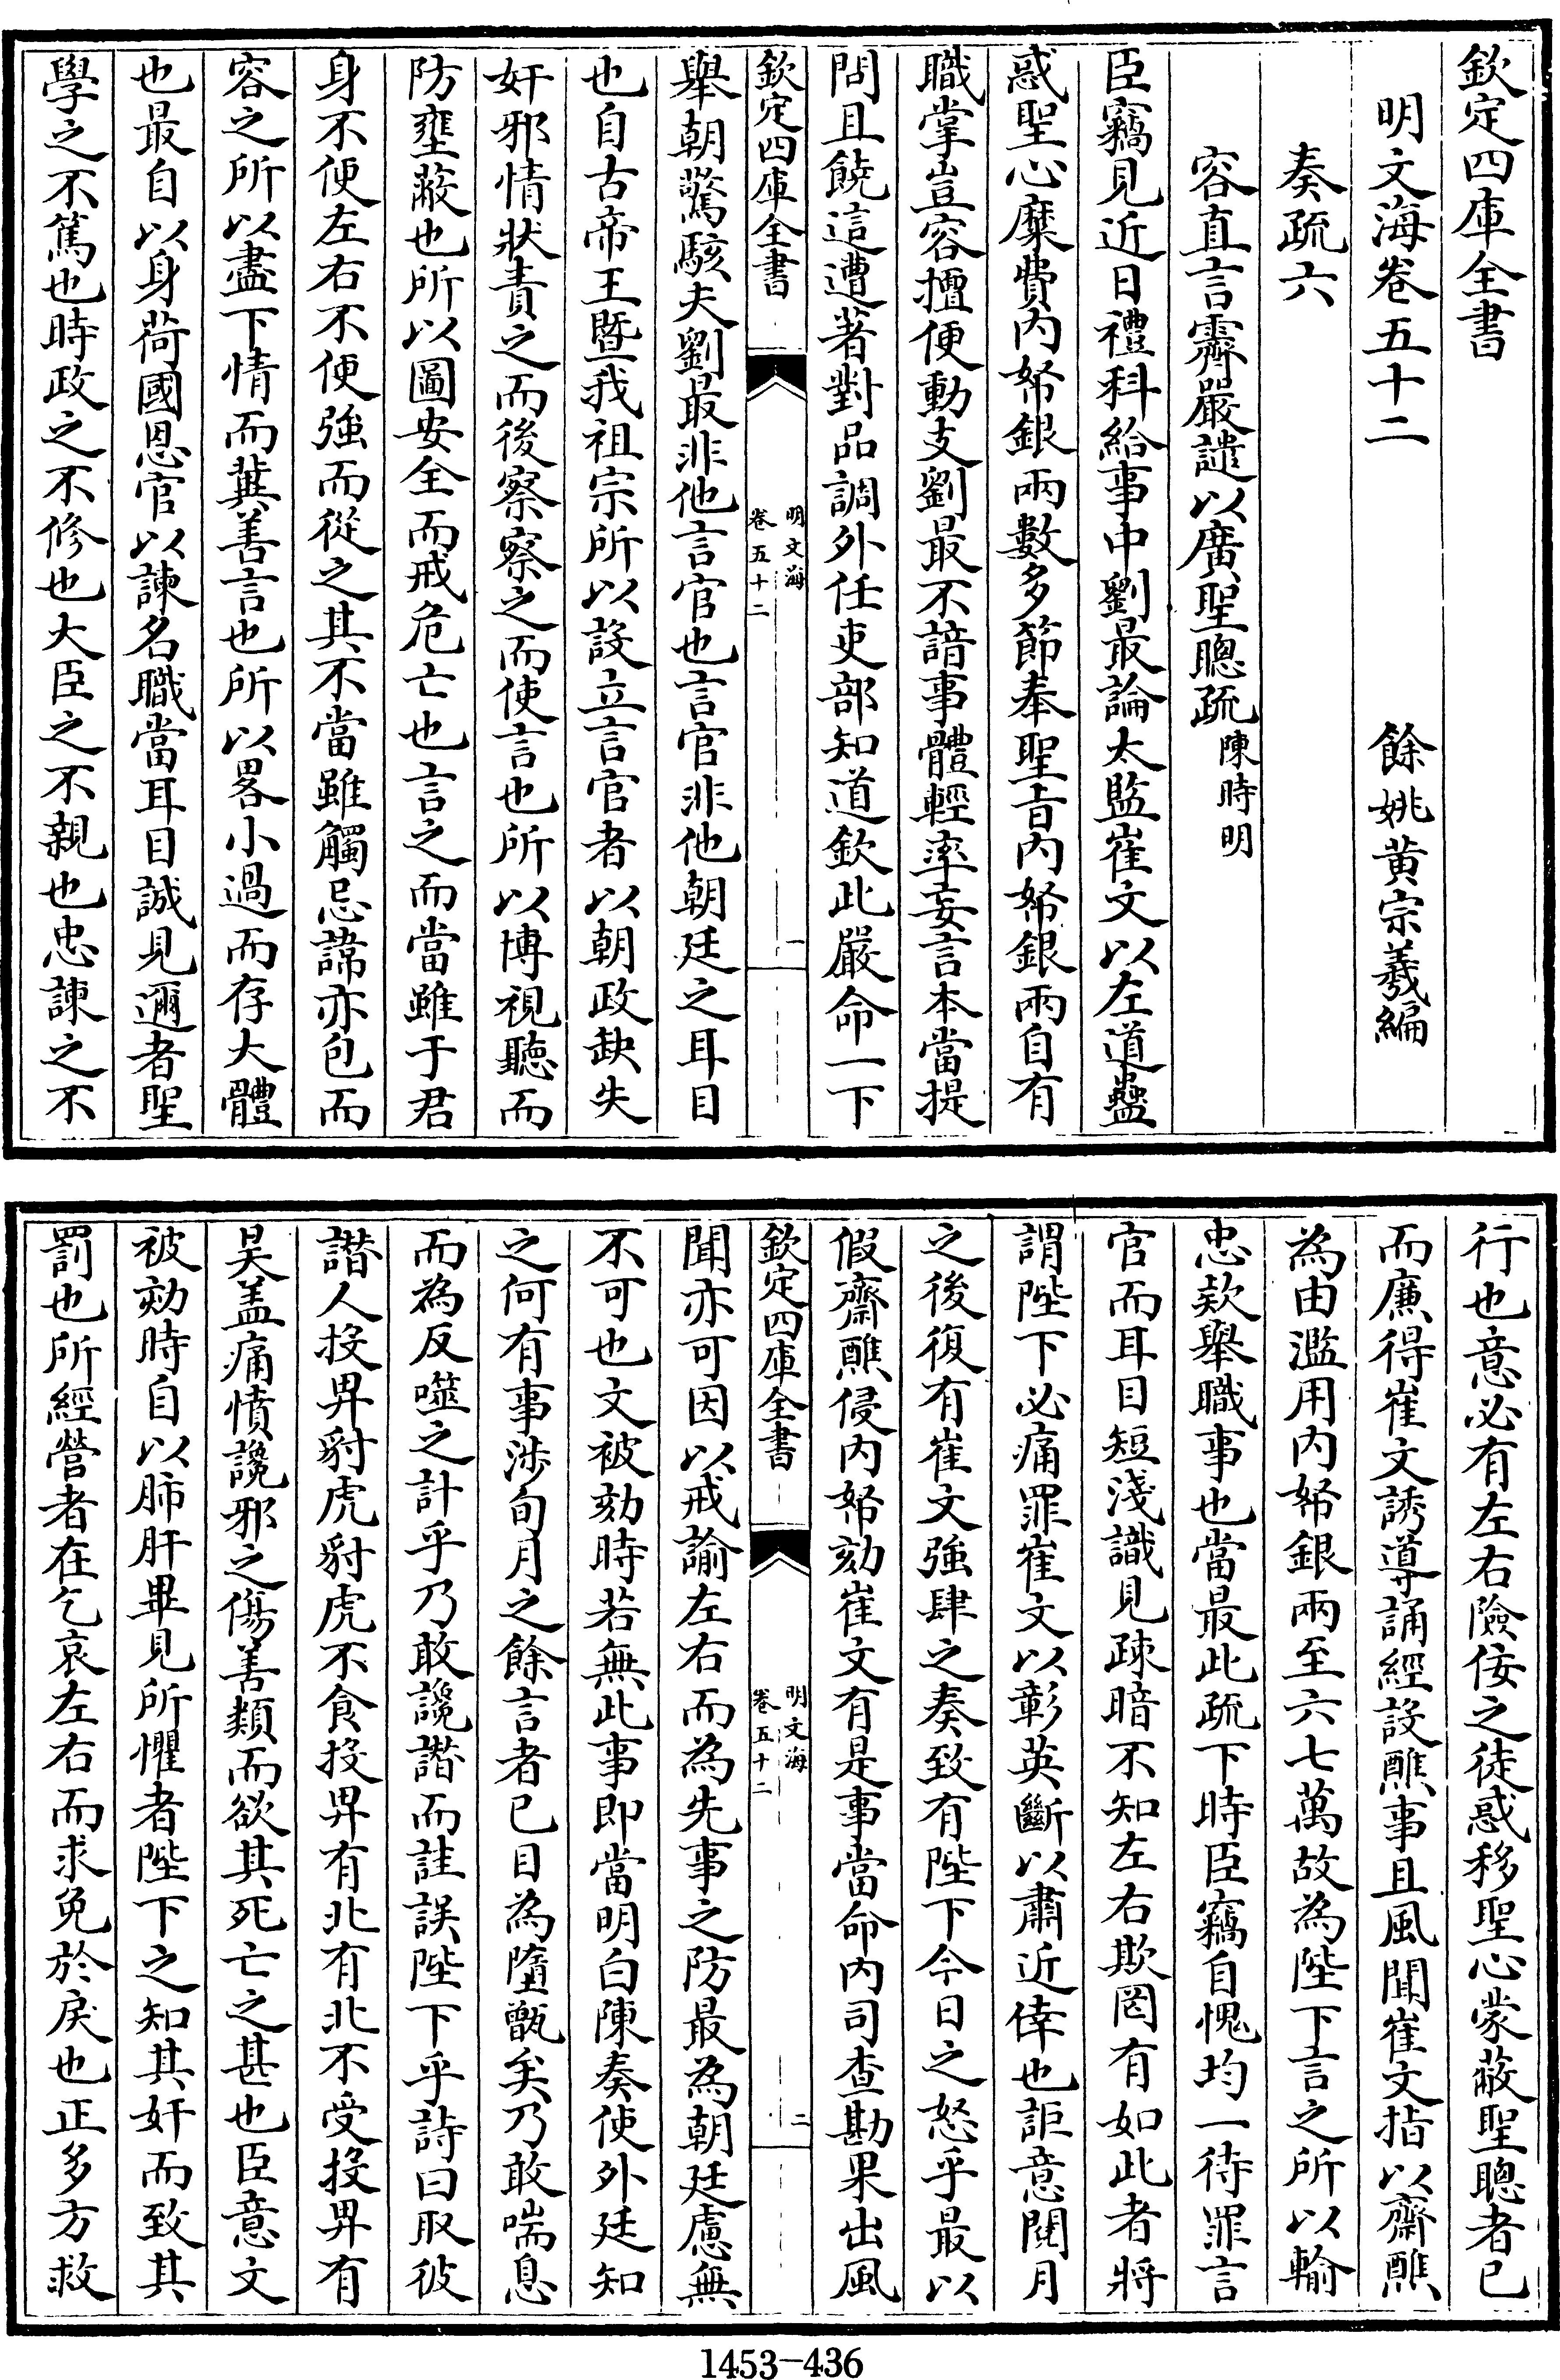 欽定四庫全書
明文海卷五十二　餘姚黃宗羲編
奏疏六
容直言霽嚴譴以廣聖聰疏陳時明
臣竊見近日禮科給事中劉最論太監崔文以左道蠱
惑聖心糜費內帑銀兩數多節奉聖旨內帑銀兩自有
職掌豈容擅便動支劉最不諳事體輕率妄言本當提
問且饒這遭著對品調外任吏部知道欽此嚴命一下
欽定四庫全書
明文海
卷五十二
一
舉朝驚駭夫劉最非他言官也言官非他朝廷之耳目
也自古帝王暨我祖宗所以設立言官者以朝政缺失
奸邪情狀責之而後察察之而使言也所以博視聽而
防壅蔽也所以圖安全而戒危亡也言之而當雖于君
身不便左右不便強而從之其不當雖觸忌諱亦包而
容之所以盡下情而冀善言也所以畧小過而存大體
也最自以身荷國恩官以諫名職當耳目誠見邇者聖
學之不篤也時政之不修也大臣之不親也忠諫之不
行也意必有左右險佞之徒惑移聖心蒙蔽聖聰者已
而廉得崔文誘導誦經設醮事且風聞崔文指以齋醮
為由濫用內帑銀兩至六七萬故為陛下言之所以輸
忠欵舉職事也當最此疏下時臣竊自愧均一待罪言
官而耳目短淺識見疎暗不知左右欺罔有如此者將
謂陛下必痛罪崔文以彰英斷以肅近倖也詎意閱月
之後復有崔文強肆之奏致有陛下今日之怒乎最以
假齋醮侵內帑劾崔文有是事當命內司查勘果出風
欽定四庫全書
明文海
卷五十二
二
聞亦可因以戒諭左右而為先事之防最為朝廷慮無
不可也文被劾時若無此事即當明白陳奏使外廷知
之何有事涉旬月之餘言者已目為墮甑矣乃敢喘息
而為反噬之計乎乃敢讒譖而詿誤陛下乎詩曰取彼
譖人投畀豺虎豺虎不食投畀有北有北不受投畀有
昊盖痛憤讒邪之傷善類而欲其死亡之甚也臣意文
被劾時自以肺肝畢見所懼者陛下之知其奸而致其
罰也所經營者在乞哀左右而求免於戾也正多方救
1453-436